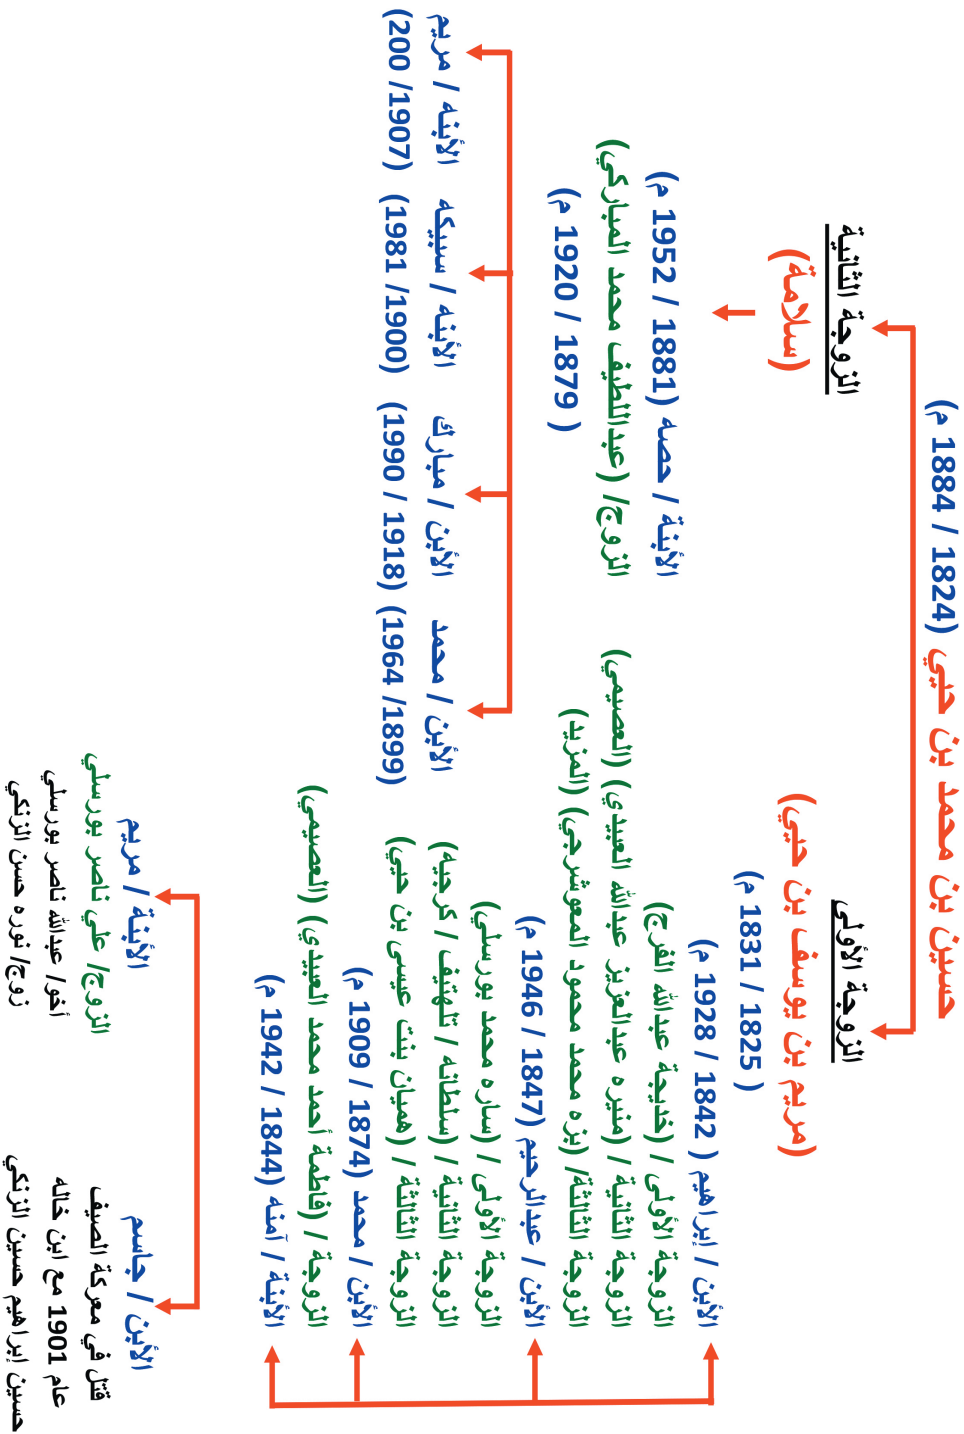 حسين بن محمد بن حيي (1824 / 1884 م)
الزوجة الأولى
(مريم بن يوسف بن حيي)
( 1825 / 1831 م)
الأبن / إبراهيم ( 1842 / 1928 م)
الزوجة الأولى / (خديجة عبدالله الفرج)
الزوجة الثانية / (منيره عبدالعزيز عبدالله العبيدي) (العصيمي)
الزوجة الثالثة/ (بزه محمد محمود المعوشرجي) (المزيد)
الأبن / عبدالرحيم (1847 / 1946 م)
الزوجة الأولى / (ساره محمد بورسلي)
الزوجة الثانية / (سلطانه / تلهتيف / كرجيه)
الزوجة الثالثة / (هميان بنت عيسى بن حيي)
الأبن / محمد (1874 / 1909 م)
الزوجة / (فاطمة أحمد محمد العبيدي) (العصيمي)
الأبنة / آمنه (1844 / 1942 م)
الزوجة الثانية
(سلامة)
الأبنة / حصه (1881 / 1952 م)
الزوج/ (عبداللطيف محمد المباركي)
( 1879 / 1920 م)
الأبن / محمد
(1899/ 1964)
الأبن / مبارك
(1918 / 1990)
الأبنه / سبيكه
(1900/ 1981)
الأبنه / مريم
(1907/ 200)
الأبن / جاسم
قتل في معركة الصيف
عام 1901 مع ابن خاله
حسين إبراهيم حسين الزنكي
الأبنة / مريم
الزوج/ علي ناصر بورسلي
أخو/ عبدالله ناصر بورسلي
زوج/ نوره حسن الزنكي